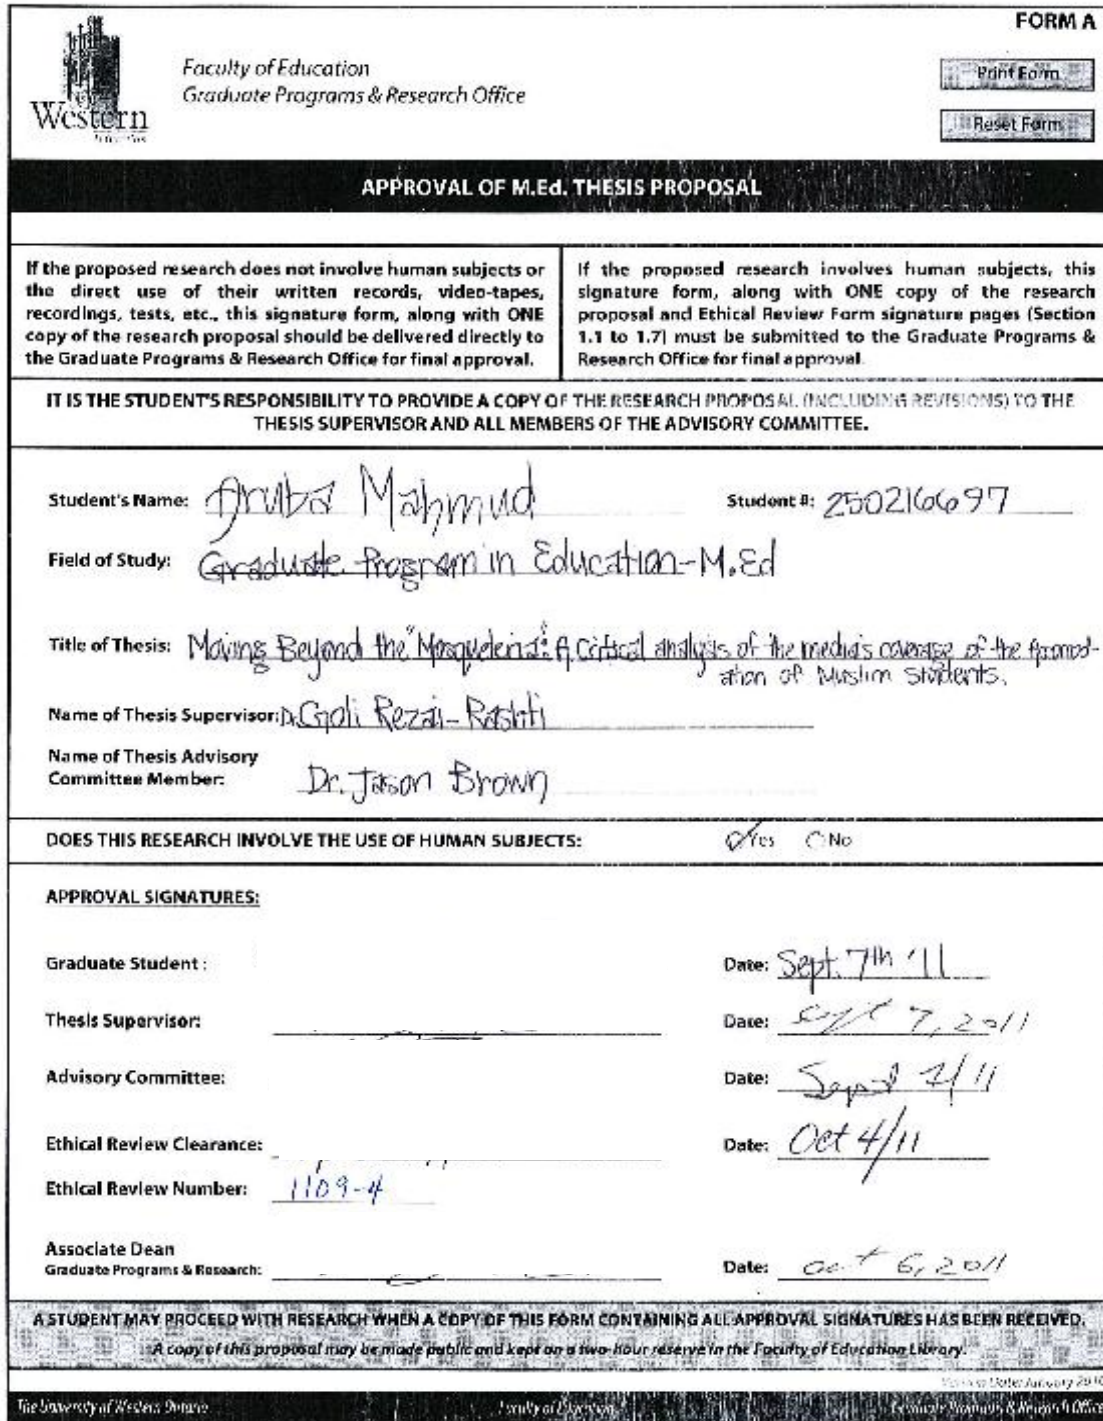 FORM A
Western
Faculty of Education
Graduate Programs & Research Office
Print Form
Reset Form
APPROVAL OF M.Ed. THESIS PROPOSAL
If the proposed research does not involve human subjects or
the direct use of their written records, video-tapes,
recordings, tests, etc., this signature form, along with ONE
copy of the research proposal should be delivered directly to
the Graduate Programs & Research Office for final approval.
If the proposed research involves human subjects, this
signature form, along with ONE copy of the research
proposal and Ethical Review Form signature pages (Section
1.1 to 1.7) must be submitted to the Graduate Programs &
Research Office for final approval.
IT IS THE STUDENT'S RESPONSIBILITY TO PROVIDE A COPY OF THE RESEARCH PROPOSAL (INCLUDING REVISIONS) TO THE
THESIS SUPERVISOR AND ALL MEMBERS OF THE ADVISORY COMMITTEE.
Student's Name: Aruba Mahmud Student #: 250216697
Field of Study: Graduate Program in Education-M.Ed
Title of Thesis: Moving Beyond the "Mosqueteria": A Critical analysis of the media's coverage of the
ation of Muslim Students.
Name of Thesis Supervisor: Dr. Goli Rezai-Rashti
Name of Thesis Advisory
Committee Member: Dr. Jason Brown
DOES THIS RESEARCH INVOLVE THE USE OF HUMAN SUBJECTS: Yes No
APPROVAL SIGNATURES:
Graduate Student : Date: Sept. 7th '11
Thesis Supervisor: Date: Sept 7, 2011
Advisory Committee: Date:
Ethical Review Clearance: Date: Oct 4/11
Ethical Review Number: 1109-4
Associate Dean
Graduate Programs & Research: Date: Oct 6, 2011
A STUDENT MAY PROCEED WITH RESEARCH WHEN A COPY OF THIS FORM CONTAINING ALL APPROVAL SIGNATURES HAS BEEN RECEIVED.
A copy of this proposal may be made public and kept on a two-hour reserve in the Faculty of Education Library.
Version Date: January 2010
The University of Western Ontario Faculty of Education Graduate Programs & Research Office